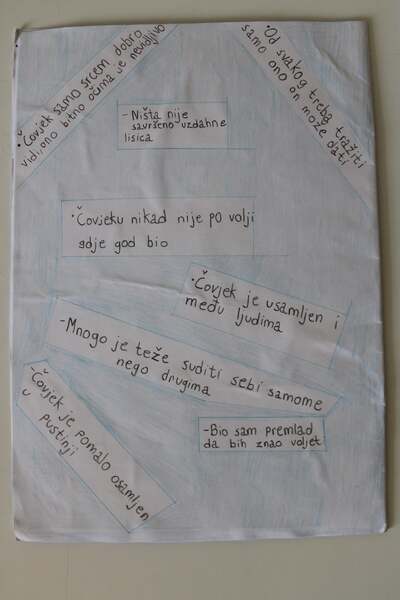 •Čovjek samo srcem dobro
vidi, ono bitno očima je nevidljivo
•Od svakog treba tražiti
samo ono on može dati
-Ništa nije
savršeno uzdahne
lisica
•Čovjeku nikad nije po volji
gdje god bio
•Čovjek je usamljen i
među ljudima
-Mnogo je teže suditi sebi samome
nego drugima
-Čovjek je pomalo osamljen
u pustinji
-Bio sam premlad
da bih znao voljet